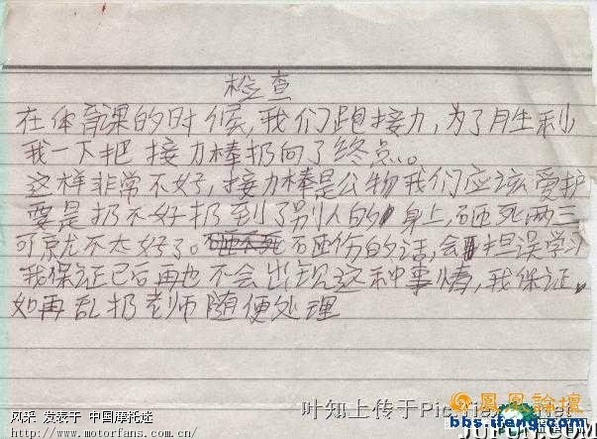 检查
在体育课的时候,我们跑接力,为了胜利
我一下把接力棒扔向了终点。
这样非常不好,接力棒是公物我们应该爱护
要是扔不好扔到了别人的身上,砸死两三
可就不太好了。砸伤的话,会担误学习
我保证已后再也不会出现这种事情,我保证
如再乱扔老师随便处理
叶知上传于
风采 发表于 中国摩托迷
http://www.motorfans.com.cn
鳳凰論壇
bbs.ifeng.com